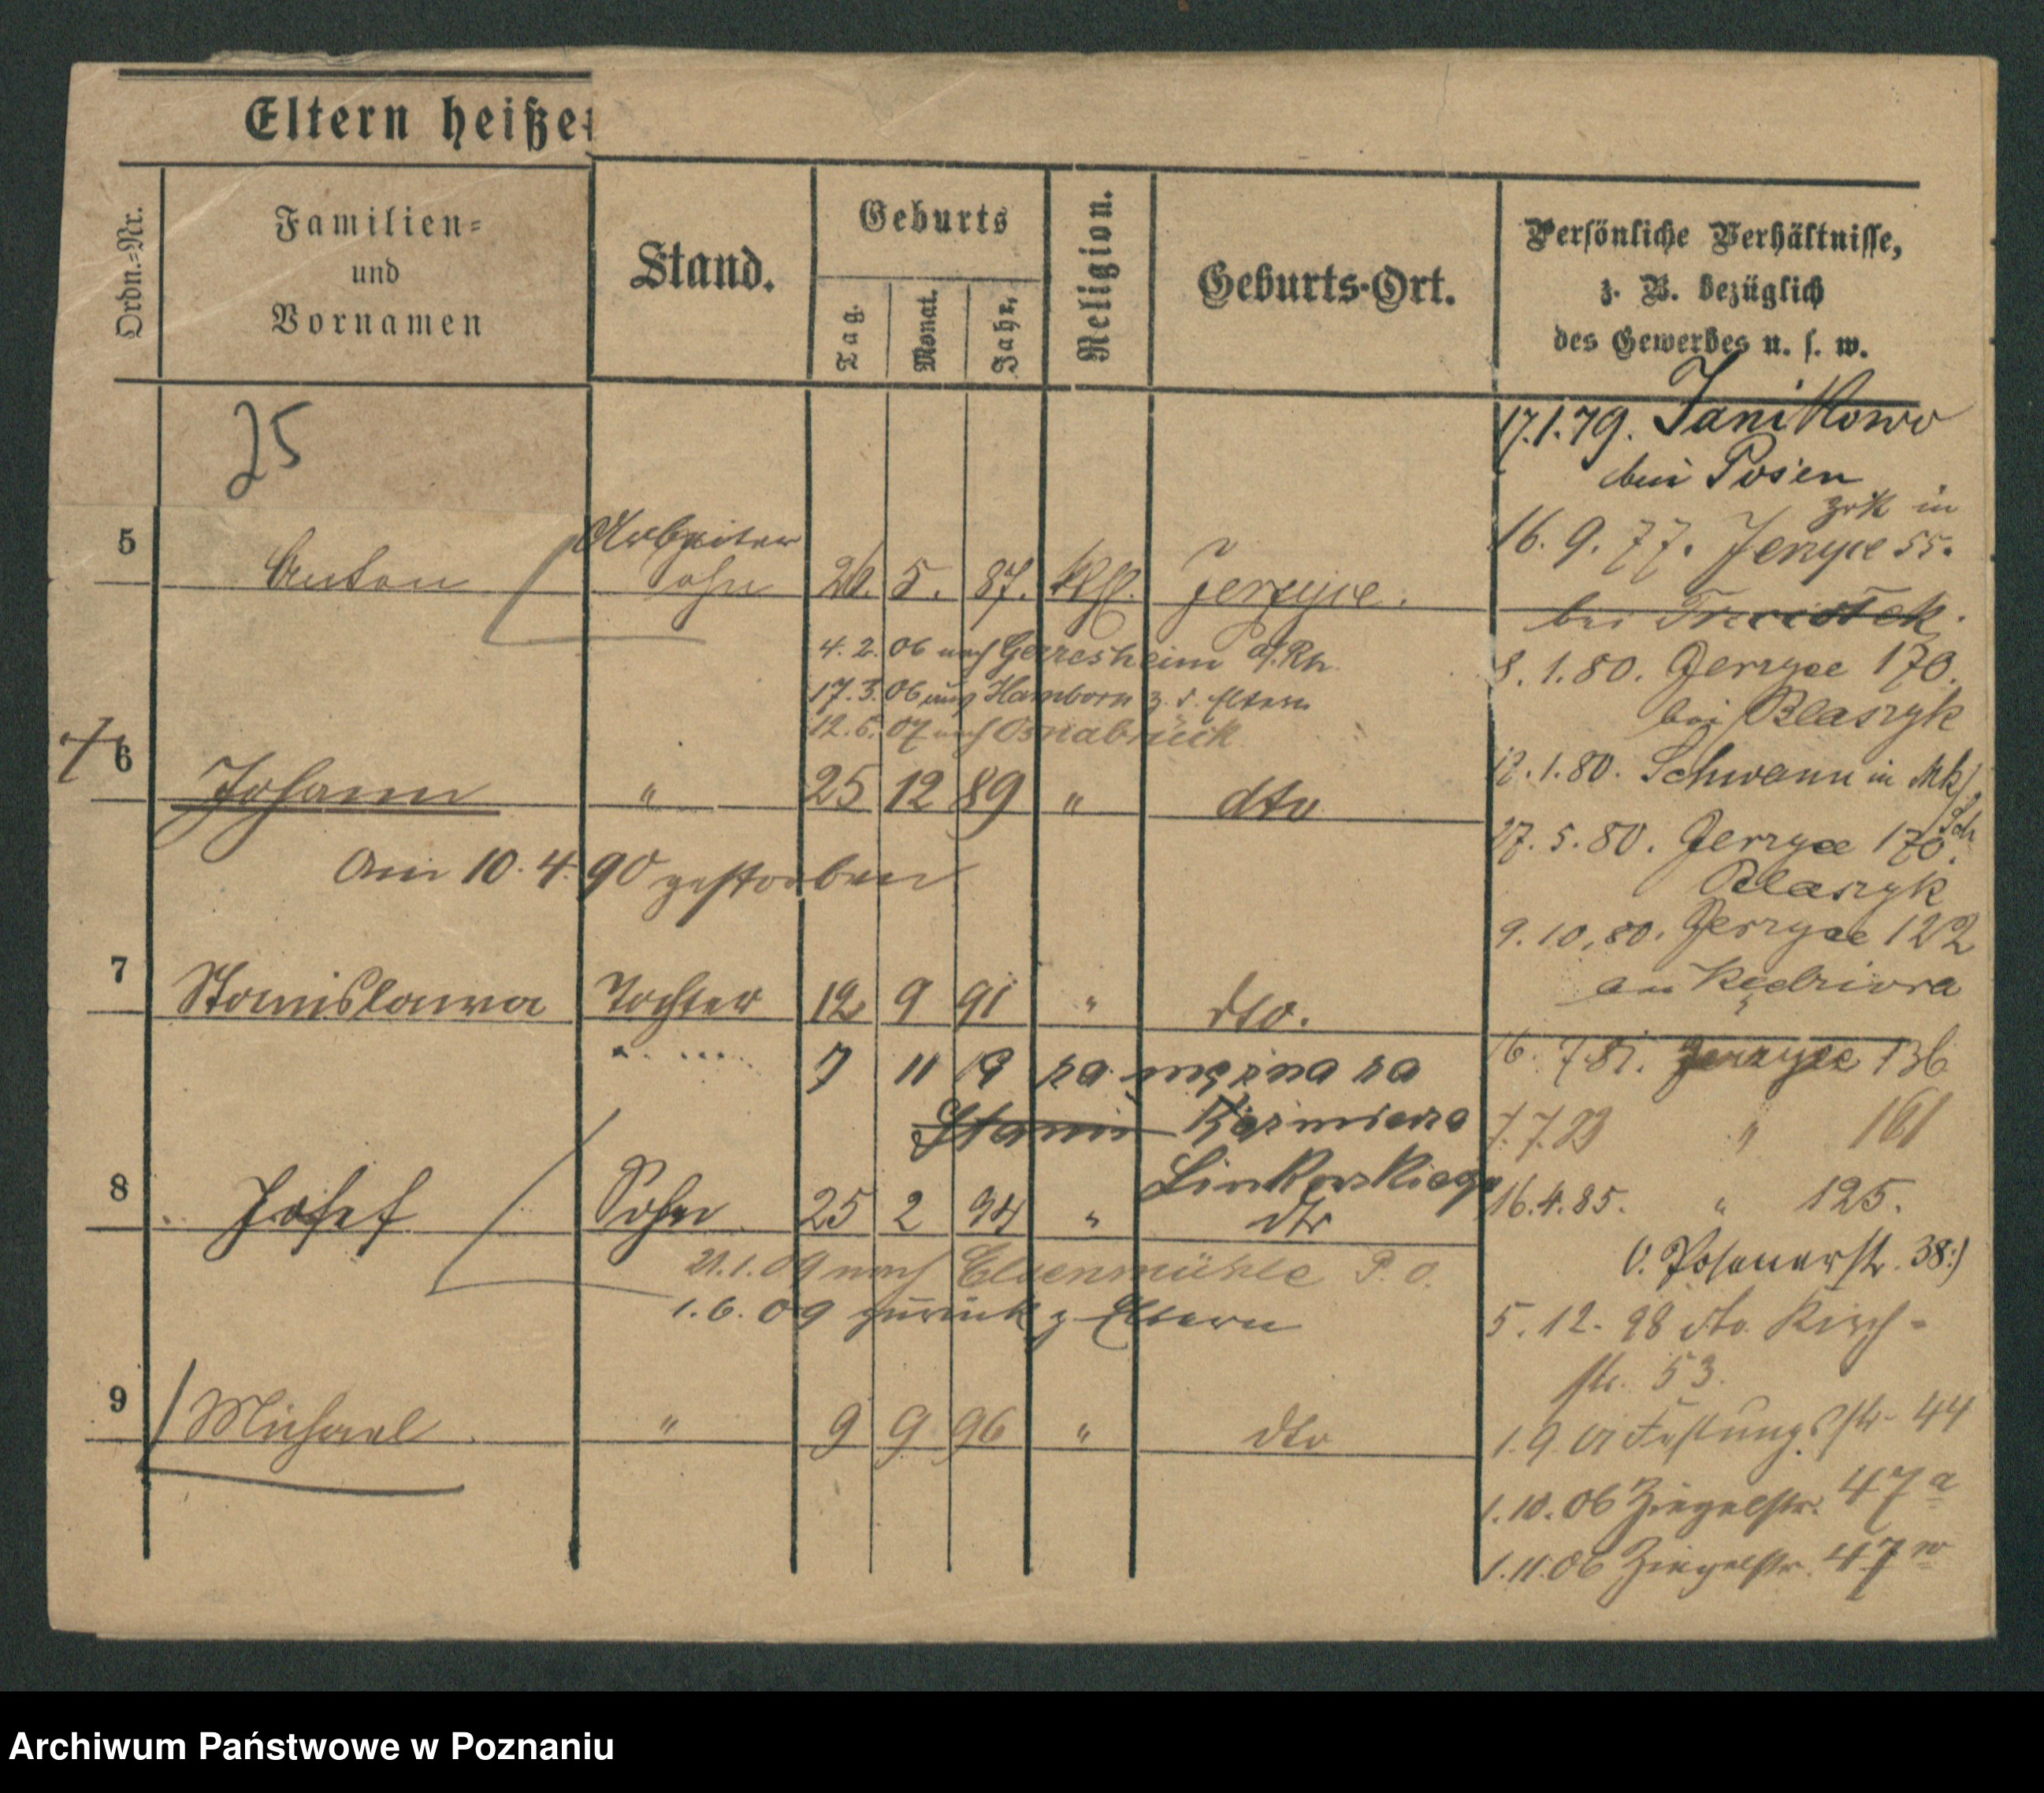 Eltern heiße
Ordn.-Nr.
Familien-
und
Vornamen
Stand.
Geburts
Tag.
Monat.
Jahr.
Religion.
Geburts-Ort.
Persönliche Verhältnisse,
z. B. bezüglich
des Gewerbes u. s. w.
25
17.1.79. Janikowo
bei Posen
zrk in
16. 9. 77. Jerzyce 55.
5 Anton Arbeiter
sohn 26. 5. 87. kth. Jerzyce.
bei
4. 2. 06 nach Gerresheim a/Rh.
8. 1. 80. Jerzyce 170.
17. 3. 06 nach Hamborn z. d. Eltern
bei Blaszyk
12. 6. 07 nach Osnabrück
12. 1. 80. Schwann in
6 Johann " 25 12 89 " dto
27. 5. 80. Jerzyce 170.
Am 10. 4. 90 gestorben
Blaszyk
9. 10. 80. Jerzyce 122
7 Stanislawa Tochter 12 9 91 " dto.
16. 7. 81. Jerzyce 136
7 11 19 za mężna za
Stanis Kazmierza
7. 7. 83 " 161
Linkowskiego
8 Josef Sohn 25 2 94 " dto
16. 4. 85. " 125.
21. 1. 09 nach Elsenmühle P. O.
(: Posenerstr. 38:)
1. 6. 09 zurück z. Eltern
5. 12. 98 dto. Kirch-
str. 53.
9 Michael " 9 9 96 " dto
1. 9. 01 Festungsstr. 44
1. 10. 06 Ziegelstr. 47 a
1. 11. 06 Ziegelstr. 47
Archiwum Państwowe w Poznaniu